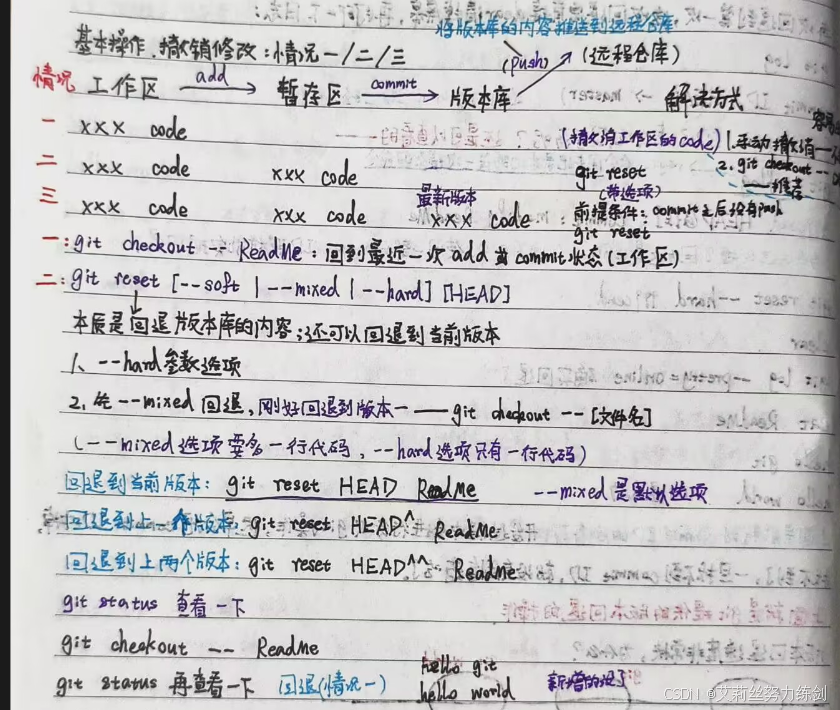 将版本库的内容推送到远程仓库
基本操作.撤销修改:情况一/二/三
(push) (远程仓库)
情况 工作区 add 暂存区 commit 版本库 解决方式
一 xxx code (撤销工作区的code) 1.手动撤销
二 xxx code xxx code git reset 2. git checkout --
(带选项) 推荐
三 xxx code xxx code 最新版本 xxx code : 前提条件: commit之后没有push
git reset
一:git checkout -- ReadMe:回到最近一次 add 或 commit状态(工作区)
二:git reset [--soft | --mixed | --hard] [HEAD]
本质是回退版本库的内容;还可以回退到当前版本
1、--hard参数选项
2. 先 --mixed 回退,刚好回退到版本一 —— git checkout -- [文件名]
(--mixed选项要多一行代码,--hard选项只有一行代码)
回退到当前版本: git reset HEAD ReadMe --mixed是默认选项
回退到上一个版本: git reset HEAD^ ReadMe
回退到上两个版本: git reset HEAD^^ ReadMe
git status 查看一下
git checkout -- ReadMe
git status 再查看一下 回退(情况一) hello git
hello world 新增的没了
CSDN @艾莉丝努力练剑